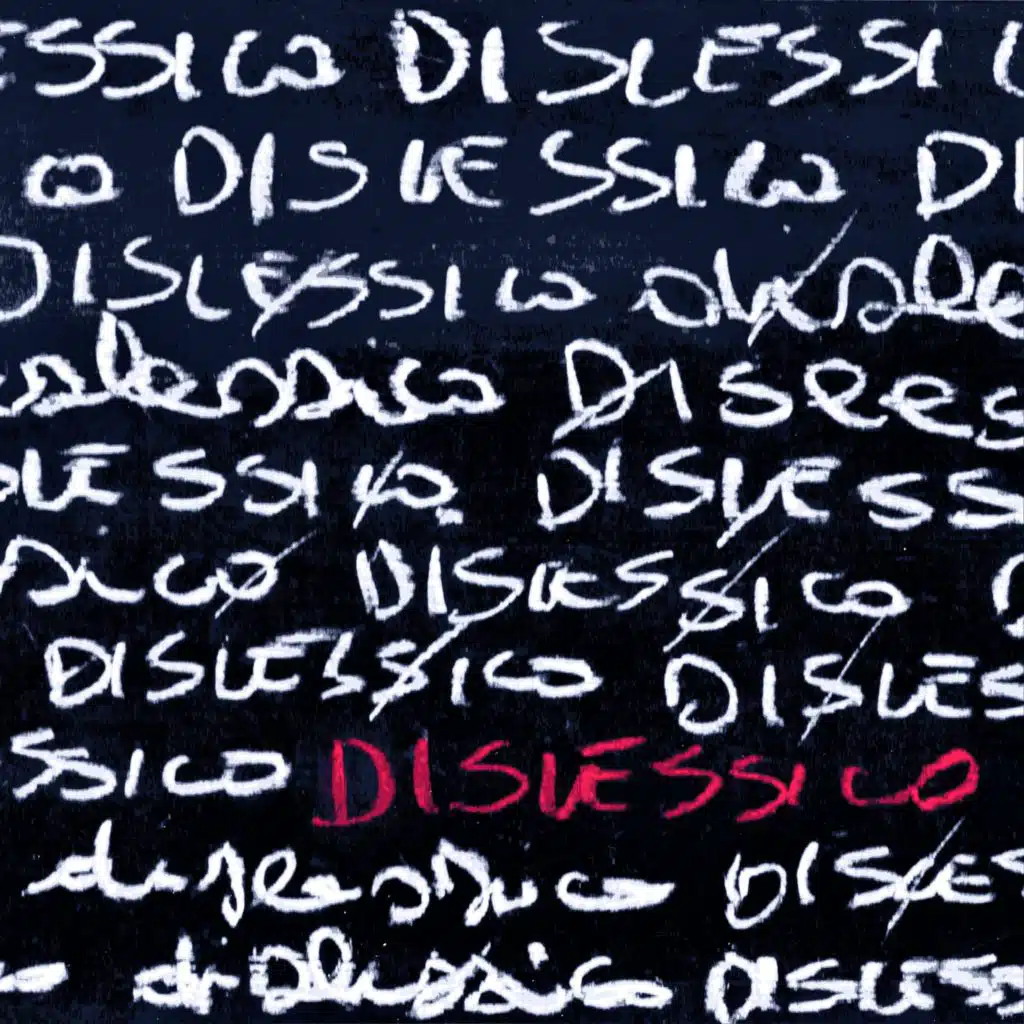 ESSICO DISLESSIC
CO DISLESSICO DI
DISLESSICO disle
slessico DISLES
SLESSICO DISLESS
SSICO DISLESSICO D
DISLESSICO DISLES
SSICO DISLESSICO
dislessico DISLES
o dislessico DISLESS